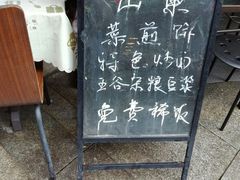 山東
菜煎饼
特色烤肉
五谷杂粮豆浆
免费稀饭